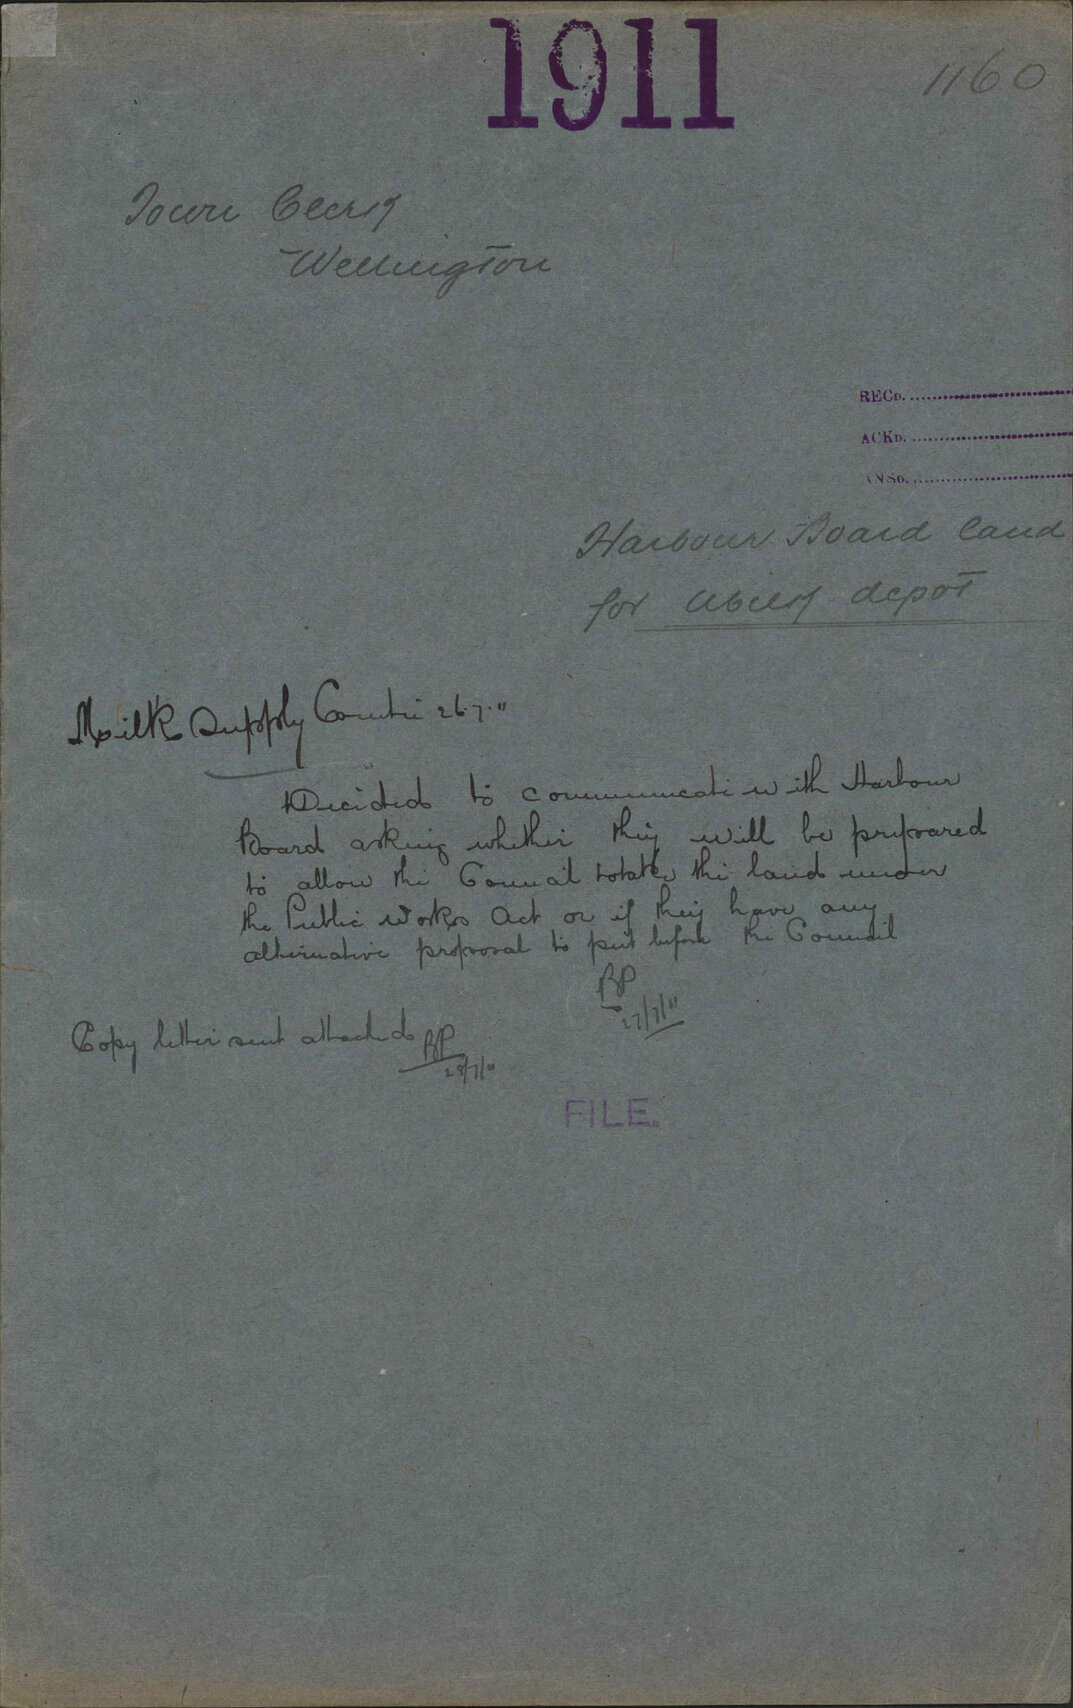 1911
1160
Town Clerk
Wellington
RECD.
ACKD.
ANSD.
Harbour Board land
for Milk depot
Milk Supply Comtee 26.7.11
Decided to communicate with Harbour
Board asking whether they will be prepared
to allow the Council to take the land under
the Public Works Act or if they have any
alternative proposal to put before the Council
BP
27/7/11
Copy letter sent attached BP
28/7/11
FILE.